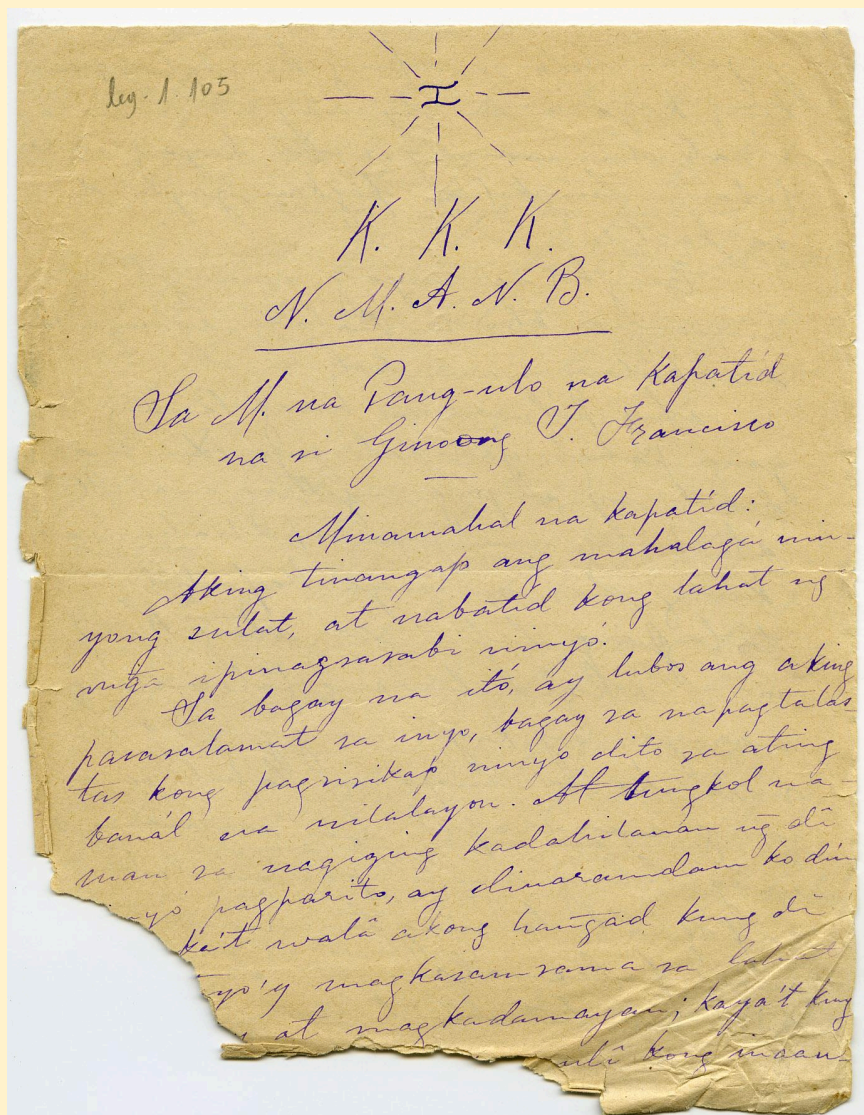 leg. 1. 105
K. K. K.
N. M. A. N. B.
Sa M. na Pang-ulo na Kapatíd
na si Ginoong J. Francisco
Minamahal na kapatíd:
Aking tinangap ang mahalagá nin-
yong sulat, at nabatíd kong lahat ng
mg̃a ipinagsasabi ninyó.
Sa bagay na itó, ay lubos ang aking
pasasalamat sa inyo, bagay sa napagtalas
tas kong pagsisikap ninyo dito sa ating
banál na nilalayon. At tungkol na-
man sa nagiging kadahilanan ng̃ dî
pagparito, ay dinaramdam ko din
walâ akong hang̃ad kung dî
magkasamsama sa lahat
at magkadamayan; kaya't kung
kong